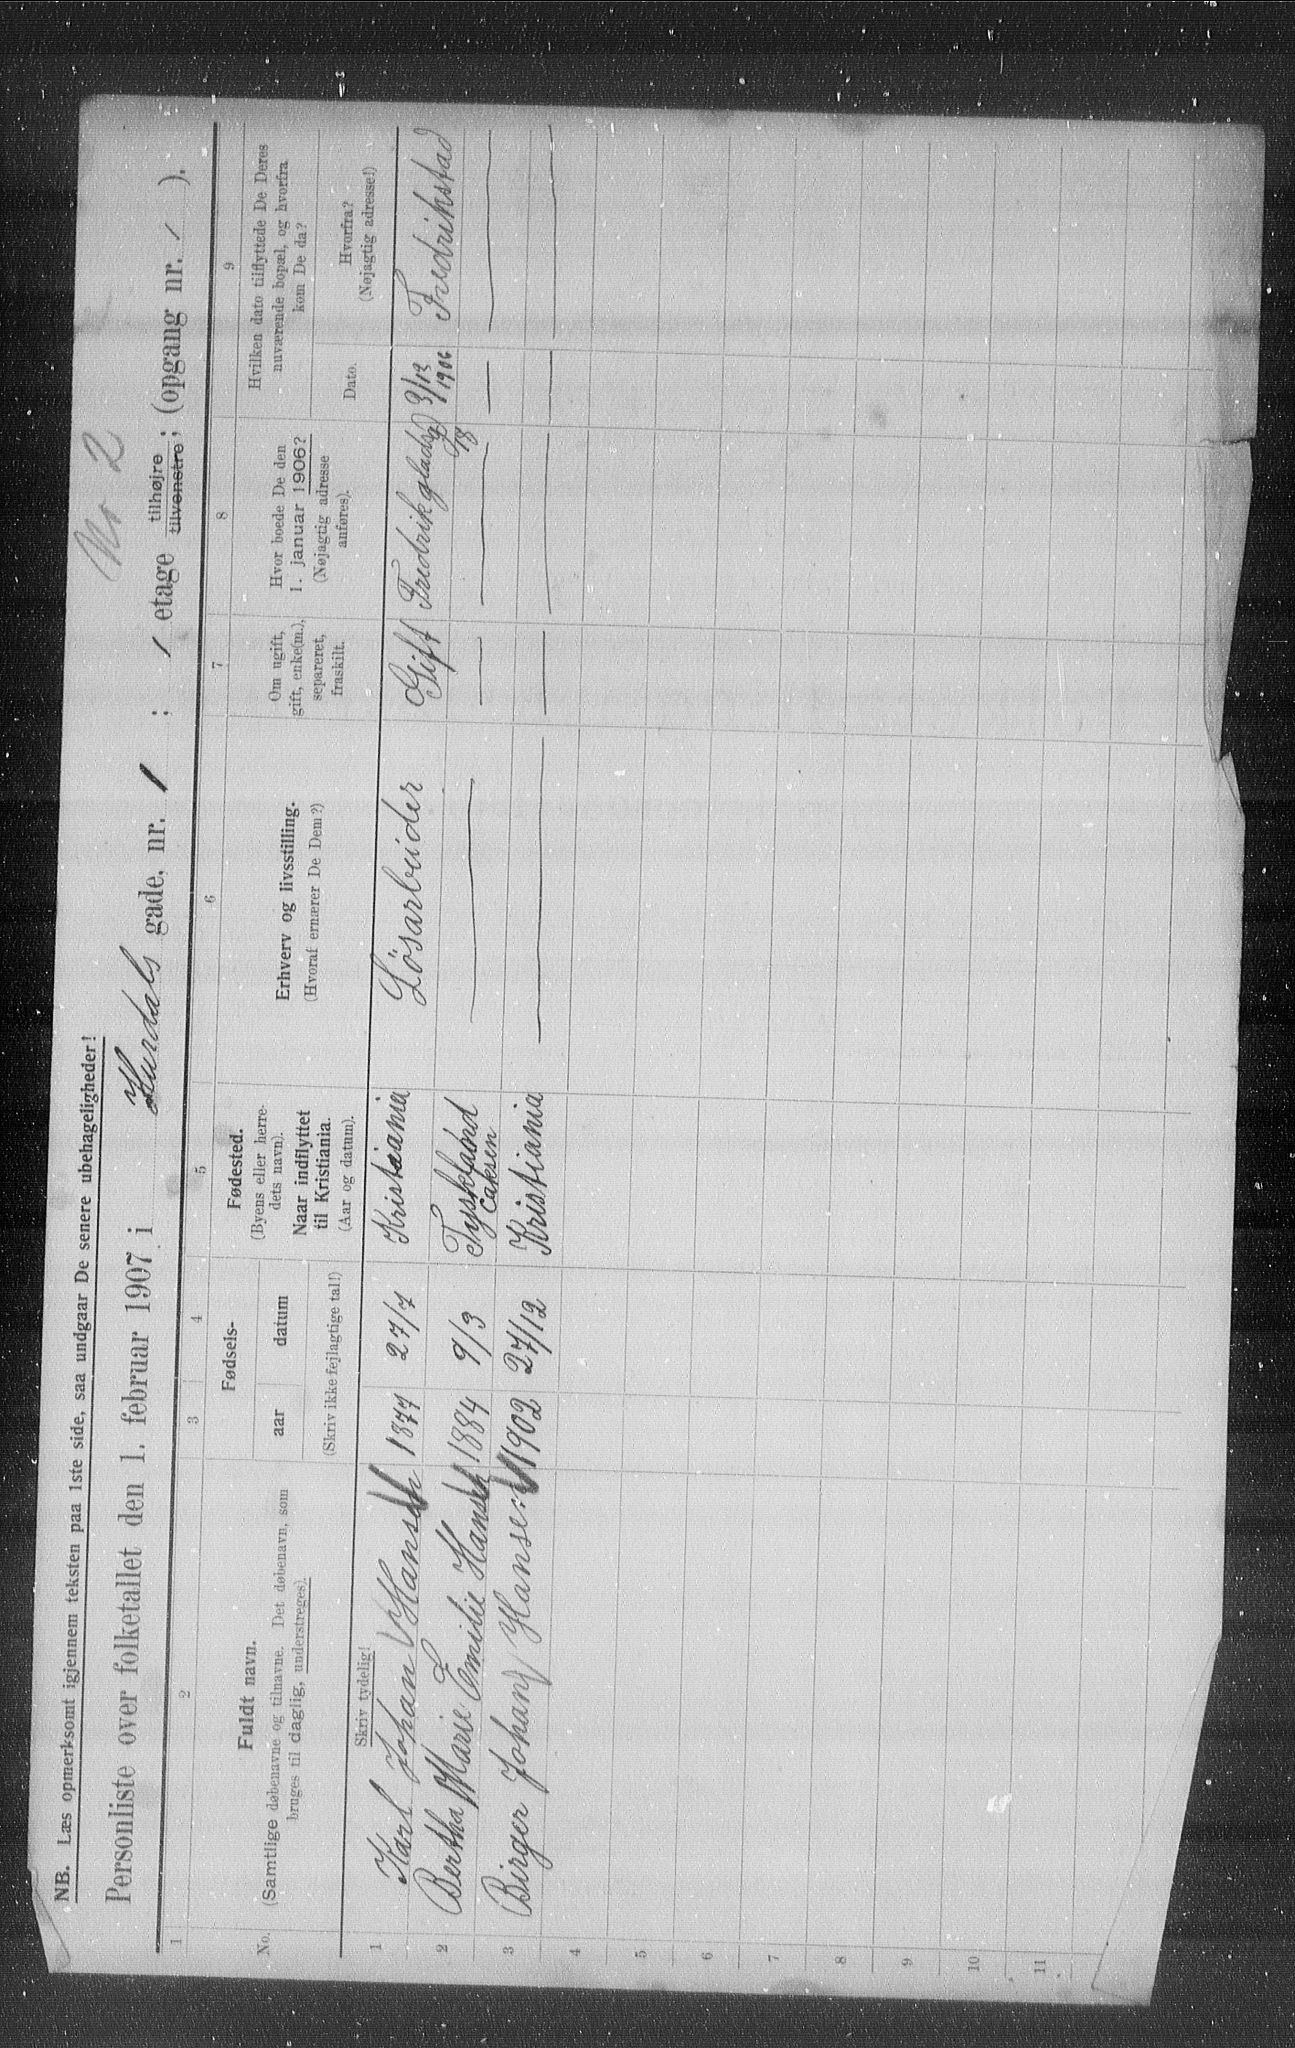 Nr 2
NB. Læs opmerksomt igjennem teksten paa 1ste side, saa undgaar De senere ubehageligheder!
Personliste over folketallet den 1. februar 1907 i Hurdals gade, nr. 1 ; 1 etage tilhøjre tilvenstre; (opgang nr. / ).
1 2 3 4 5 6 7 8 9
No.
Fuldt navn.
(Samtlige døbenavne og tilnavne. Det døbenavn, som
bruges til daglig, understreges).
Fødsels-
aar datum
(Skriv ikke fejlagtige tal!)
Fødested.
(Byens eller herre-
dets navn).
Naar indflyttet
til Kristiania.
(Aar og datum).
Erhverv og livsstilling.
(Hvoraf ernærer De Dem?)
Om ugift,
gift, enke(m.),
separeret,
fraskilt.
Hvor boede De den
1. januar 1906?
(Nøjagtig adresse
anføres).
Hvilken dato tilflyttede De Deres
nuværende bopæl, og hvorfra
kom De da?
Dato.
Hvorfra?
(Nøjagtig adresse!)
Skriv tydelig!
1 Karl Johan Hansen 1877 27/7 Kristiania Lösarbeider Gift 3/12 1906 Fredrikstad
2 Bertha Marie Emilie Hansen 1884 9/3 Tyskland
3 Birger Johan Hansen 1902 27/12 Kristiania
4
5
6
7
8
9
10
11